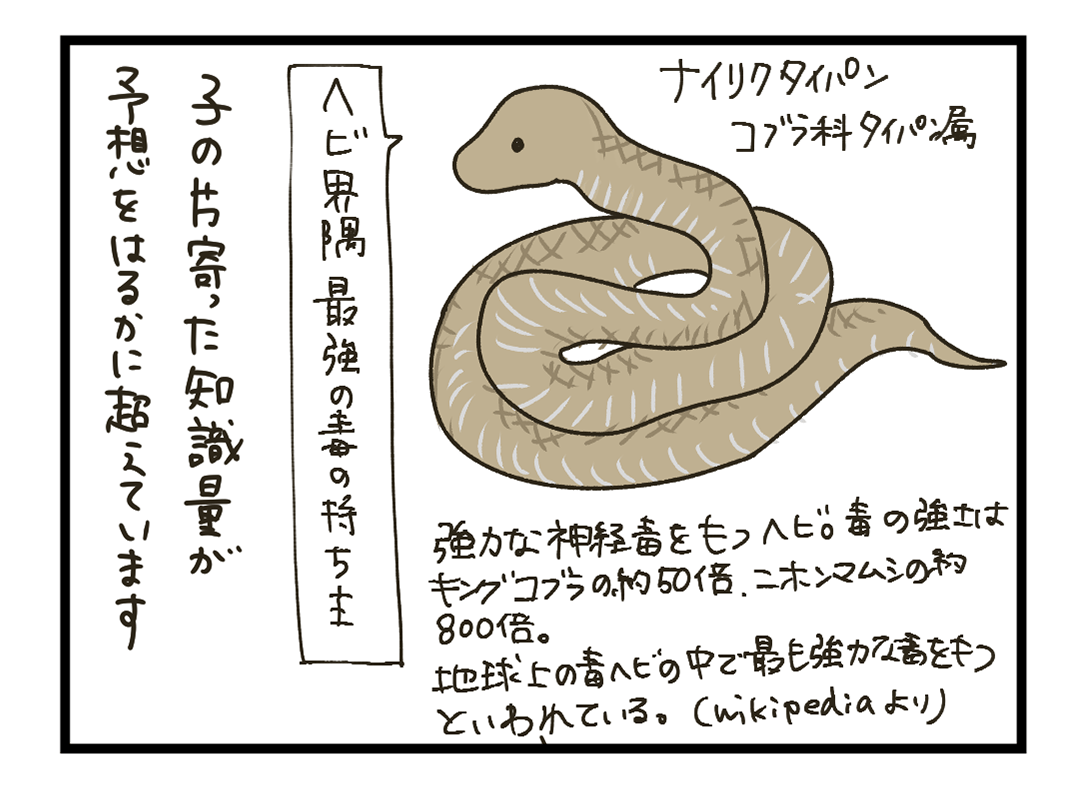 ナイリクタイパン
コブラ科タイパン属
ヘビ界隈最強の毒の持ち主
子の片寄った知識量が
予想をはるかに超えています
強力な神経毒をもつヘビ。毒の強さは
キングコブラの約50倍、ニホンマムシの約
800倍。
地球上の毒ヘビの中で最も強力な毒をもつ
といわれている。(wikipediaより)